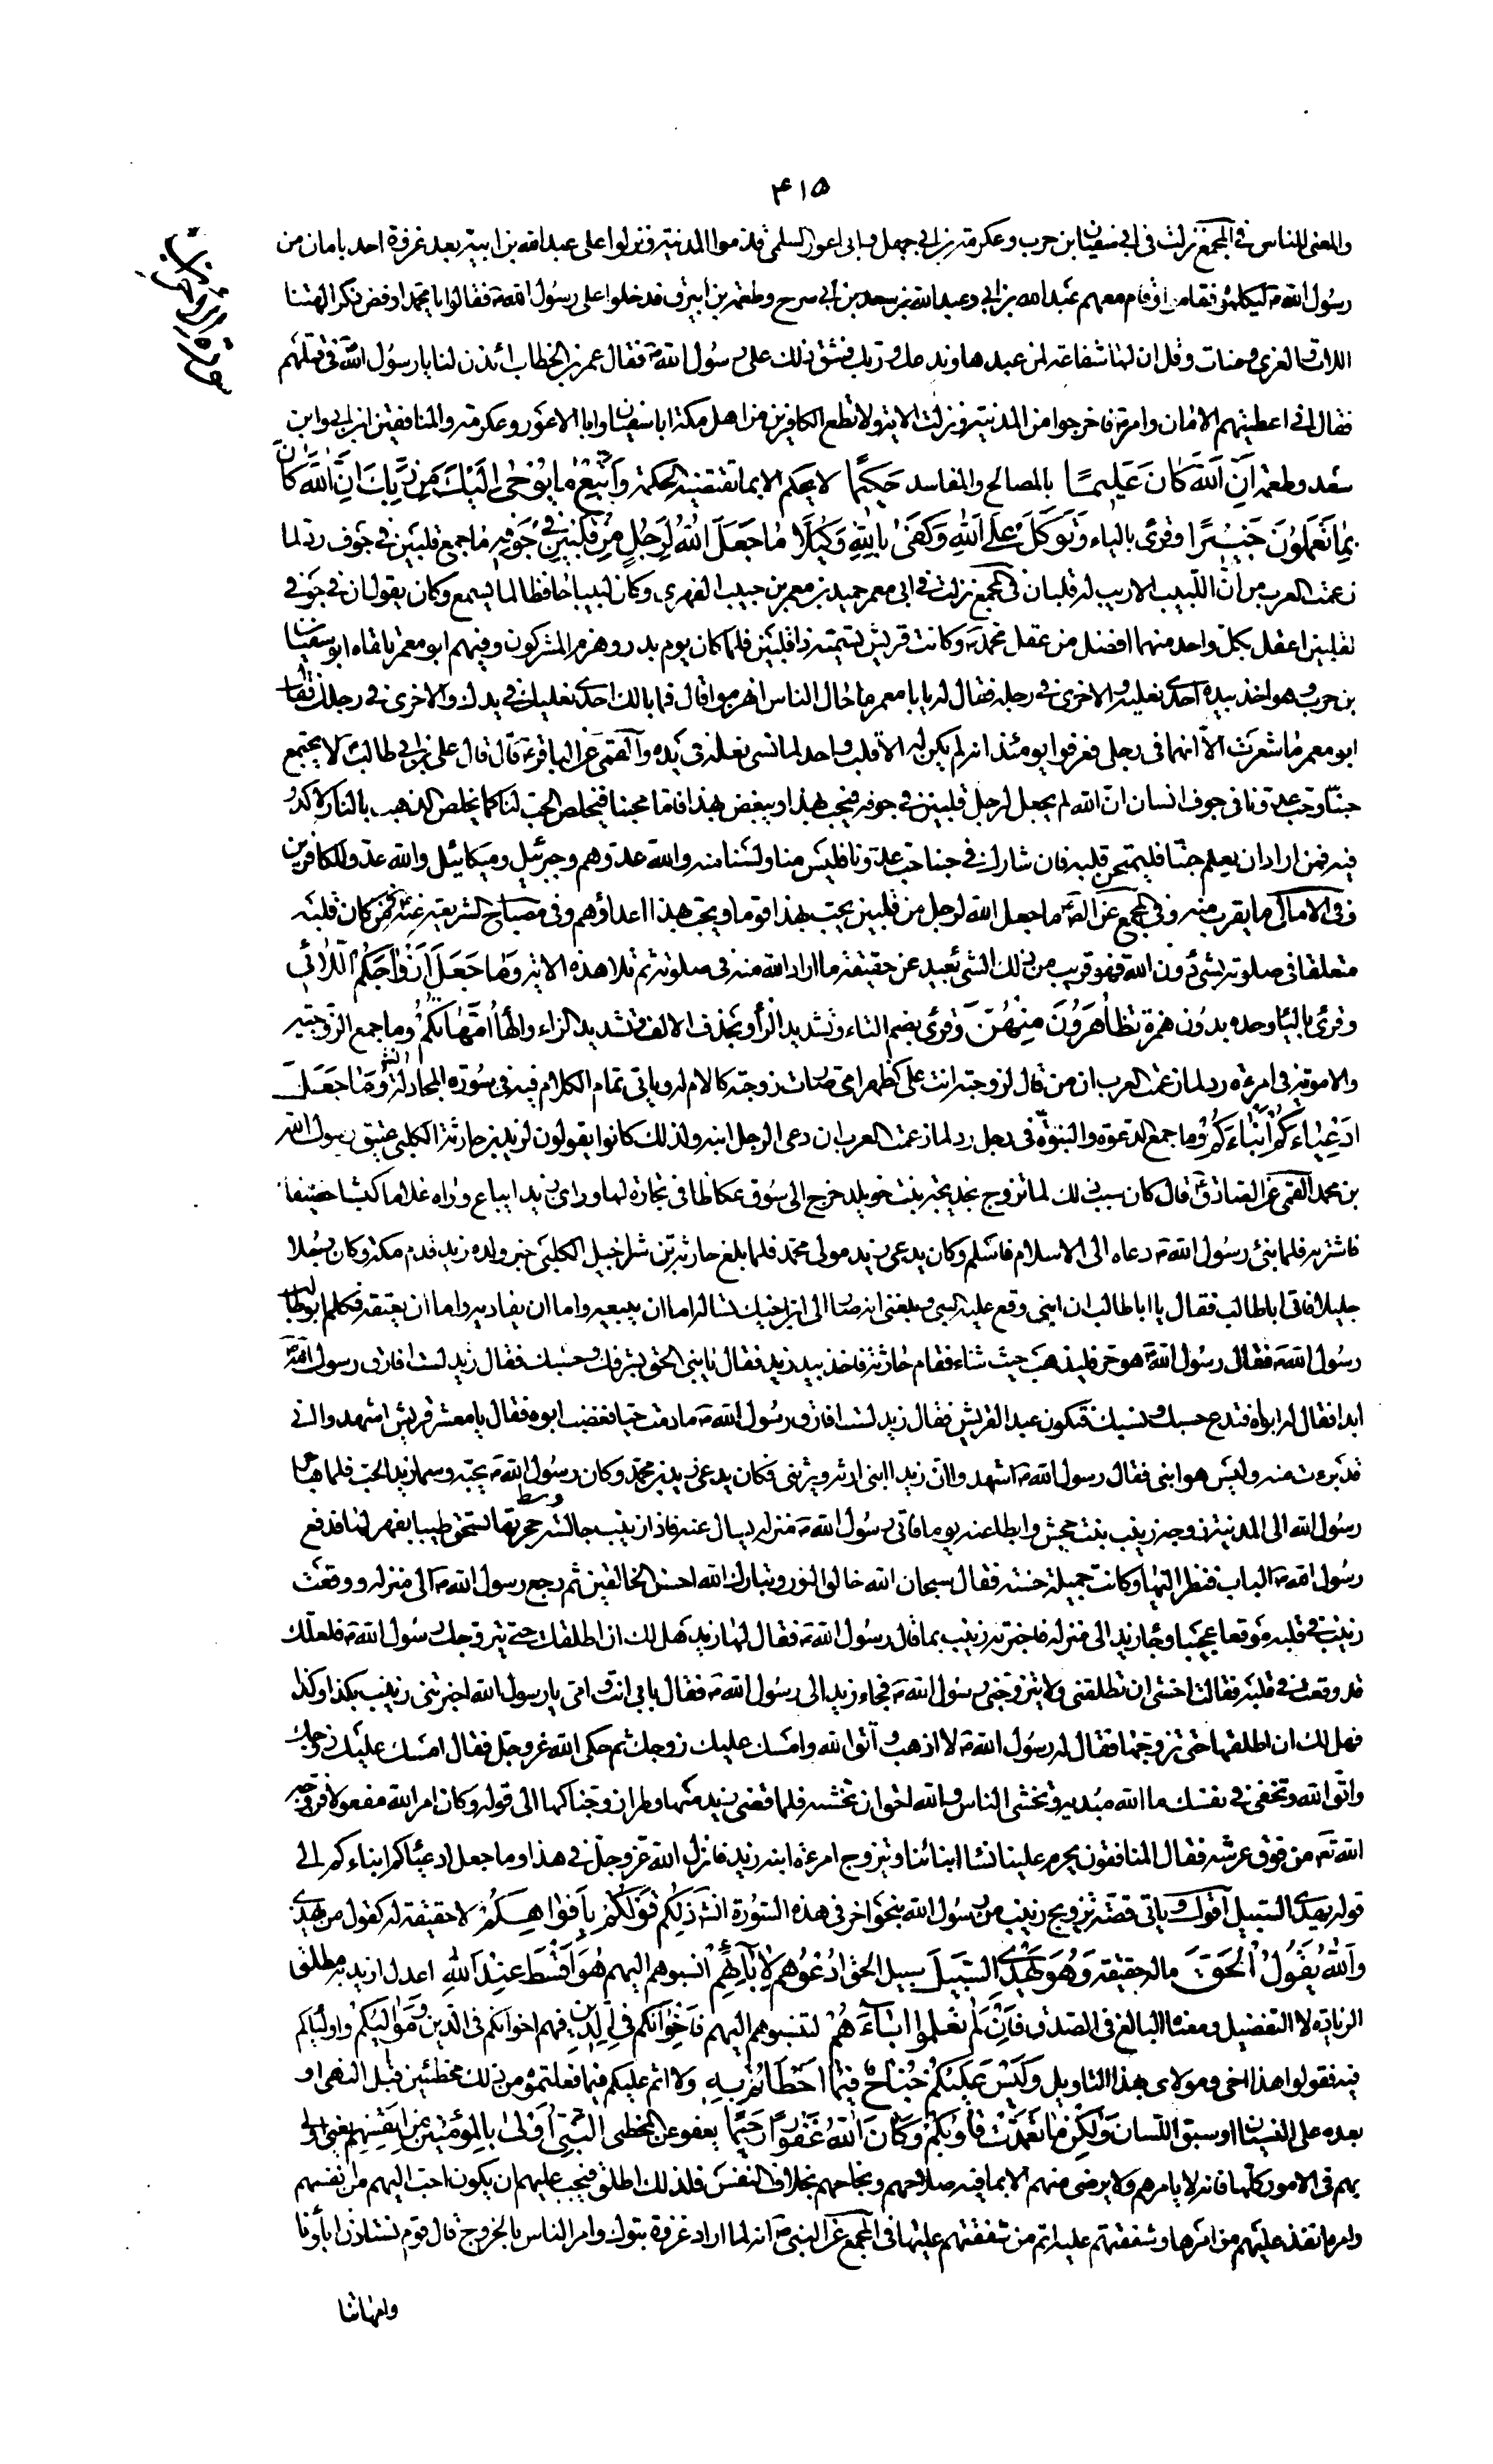 ۴۱۵
سورة الاحزاب
والمعنى للناس في المجمع نزلت في ابي سفيان ابن حرب وعكرمة بن ابي جهل وابى اعور السلمى قدموا المدينة ونزلوا على عبد الله بن ابى بعد غزوة احد بامان من
رسول الله ص ليكلموه فقام وقام معهم عبد الله بن ابي وعبد الله بن سعد بن ابي سرح وطعمة بن ابيرق فدخلوا على رسول الله ص فقالوا يا محمد ارفض ذكر الهتنا
اللات والعزى ومنات وقل ان لها شفاعة لمن عبدها وندعك وربك فشق ذلك على رسول الله ص فقال عمر بن الخطاب ائذن لنا يا رسول الله في قتلهم
فقال انى اعطيتهم الامان وامر ص فاخرجوا من المدينة ونزلت الاية ولا تطع الكافرين من اهل مكة ابا سفيان وابا الاعور وعكرمة والمنافقين ابن ابي وابن
سعد وطعمة ان الله كان عليما بالمصالح والمفاسد حكيما لا يحكم الا بما تقتضيه الحكمة واتبع ما يوحى اليك من ربك ان الله كان
بما تعملون خبيرا وقرئ بالياء وتوكل على الله وكفى بالله وكيلا ما جعل الله لرجل من قلبين في جوفه ما جمع قلبين في جوف رد لما
زعمت العرب من ان اللبيب الاريب له قلبان في المجمع نزلت في ابى معمر حميد بن معمر بن حبيب الفهري وكان لبيبا حافظا لما يسمع وكان يقول ان في جوفي
لقلبين اعقل بكل واحد منهما افضل من عقل محمد ص وكانت قريش تسميه ذا قلبين فلما كان يوم بدر وهزم المشركون وفيهم ابو معمر تلقاه ابو سفيان
بن حرب وهو اخذ بيده احدى نعليه والاخرى في رجله فقال له يا با معمر ما حال الناس انهزموا قال فما بالك احدى نعليك في يدك والاخرى في رجلك فقال
ابو معمر ما شعرت الا انهما في رجلى فعرفوا يومئذ انه لم يكن له الا قلب واحد لما نسى نعله في يده والقمى عن الباقر ع قال قال علي بن ابي طالب لا يجتمع
حبنا وحب عدونا في جوف انسان ان الله لم يجعل لرجل قلبين في جوفه فيحب بهذا ويبغض بهذا فاما محبنا فيخلص الحب لنا كما يخلص الذهب بالنار لا كدر
فيه فمن اراد ان يعلم حبنا فليمتحن قلبه فان شارك في حبنا حب عدونا فليس منا ولسنا منه والله عدوهم وجبرئيل وميكائيل والله عدو للكافرين
وفي الامالى ما يقرب منه وفي المجمع عن الص ع ما جعل الله لرجل من قلبين يحب بهذا قوما ويحب بهذا اعداؤهم وفي مصباح الشريعة عنه ع فمن كان قلبه
متعلقا في صلوته بشئ دون الله فهو قريب من ذلك الشئ بعيد عن حقيقة ما اراد الله منه في صلوته ثم تلا هذه الاية وما جعل ازواجكم اللائي
وقرئ بالياء وحده بدون همزة تظاهرون منهن وقرئ بضم التاء وتشديد الراء وبحذف الالف وتشديد الزاء والهاء امهاتكم وما جمع الزوجية
والامومة في امرءة رد لما زعمت العرب ان من قال لزوجته انت علي كظهر امى صارت زوجته كالام له وياتى تمام الكلام فيه في سورة المجادلة انشاء الله وما جعل
ادعياءكم ابناءكم وما جمع الدعوة والبنوة في رجل رد لما زعمت العرب ان دعى الرجل ابنه ولذلك كانوا يقولون لزيد بن حارثة الكلبى عتيق رسول الله
بن محمد القمى عن الصادق ع قال كان سبب ذلك لما تزوج بخديجة بنت خويلد خرج الى سوق عكاظ في تجارة لها وراى زيدا يباع وراه غلاما كيسا حصيفا
فاشتراه فلما نبئ رسول الله ص دعاه الى الاسلام فاسلم وكان يدعى زيد مولى محمد فلما بلغ حارثة بن شراحيل الكلبى خبر ولده زيد قدم مكة وكان رجلا
جليلا فاتى ابا طالب فقال يا ابا طالب ان ابنى وقع عليه السبى وبلغنى انه صار الى ابن اخيك تساله اما ان يبيعه واما ان يفاديه واما ان يعتقه فكلم ابو طالب
رسول الله ص فقال رسول الله ص هو حر فليذهب حيث شاء فقام حارثة فاخذ بيد زيد فقال يا بنى الحق بشرفك وحسبك فقال زيد لست افارق رسول الله ص
ابدا فقال له ابواه فتدع حسبك ونسبك فتكون عبدا لقريش فقال زيد لست افارق رسول الله ص ما دمت حيا فغضب ابوه فقال يا معشر قريش اشهدوا اني
قد برءت منه وليس هو ابنى فقال رسول الله ص اشهدوا ان زيدا ابنى ارثه ويرثنى فكان يدعى زيد بن محمد وكان رسول الله ص يحبه وسماه زيد الحب فلما هاجر
رسول الله الى المدينة زوجه زينب بنت جحش وابطا عنه يوما فاتى رسول الله ص منزله يسال عنه فاذا زينب جالسة وسط حجرتها تسحق طيبا بفهر لها فدفع
رسول الله ص الباب فنظر اليها وكانت جميلة حسنة فقال سبحان الله خالق النور وتبارك الله احسن الخالقين ثم رجع رسول الله ص الى منزله ووقعت
زينب في قلبه موقعا عجيبا وجاء زيد الى منزله فاخبرته زينب بما قال رسول الله ص فقال لها زيد هل لك ان اطلقك حتى يتزوجك رسول الله ص فلعلك
قد وقعت في قلبه فقالت اخشى ان تطلقنى ولا يتزوجنى رسول الله ص فجاء زيد الى رسول الله ص فقال بابي انت وامى يا رسول الله اخبرتنى زينب بكذا وكذا
فهل لك ان اطلقها حتى تزوجها فقال له رسول الله ص لا اذهب واتق الله وامسك عليك زوجك ثم حكى الله عز وجل فقال امسك عليك زوجك
واتق الله وتخفى في نفسك ما الله مبديه وتخشى الناس والله احق ان تخشه فلما قضى زيد منها وطرا زوجناكها الى قوله وكان امر الله مفعولا فزوجه
الله تع من فوق عرشه فقال المنافقون يحرم علينا نساء ابنائنا ويتزوج امرءة ابنه زيد فانزل الله عز وجل في هذا وما جعل ادعياءكم ابناءكم الى
قوله يهدى السبيل اقول وياتى قصة تزويج زينب من رسول الله بنحو اخر في هذه السورة انشاء ذلكم قولكم بافواهكم لا حقيقة له كقول من يهذي
والله يقول الحق ماله حقيقة وهو يهدي السبيل سبيل الحق ادعوهم لابائهم انسبوهم اليهم هو اقسط عند الله اعدل اريد به مطلق
الزيادة لا التفضيل ومعناه البالغ في الصدق فان لم تعلموا اباءهم لتنسبوهم اليهم فاخوانكم في الدين فهم اخوانكم في الدين ومواليكم واولياكم
فيه فقولوا هذا اخى ومولاى بهذا التاويل وليس عليكم جناح فيما اخطاتم به ولا اثم عليكم فيما فعلتموه من ذلك مخطئين قبل النهى او
بعده على النسيان او سبق اللسان ولكن ما تعمدت قلوبكم وكان الله غفورا رحيما يعفو عن المخطى النبي اولى بالمؤمنين من انفسهم يعنى اولى
بهم في الامور كلها فانه لا يامرهم ولا يرضى منهم الا بما فيه صلاحهم ونجاحهم بخلاف النفس فلذلك اطلق فيجب عليهم ان يكون احب اليهم من انفسهم
وامره انفذ عليهم من امرها وشفقتهم عليه اتم من شفقتهم عليها في المجمع عن النبى ص انه لما اراد غزوة تبوك وامر الناس بالخروج قال قوم نستاذن اباءنا
وامهاتنا